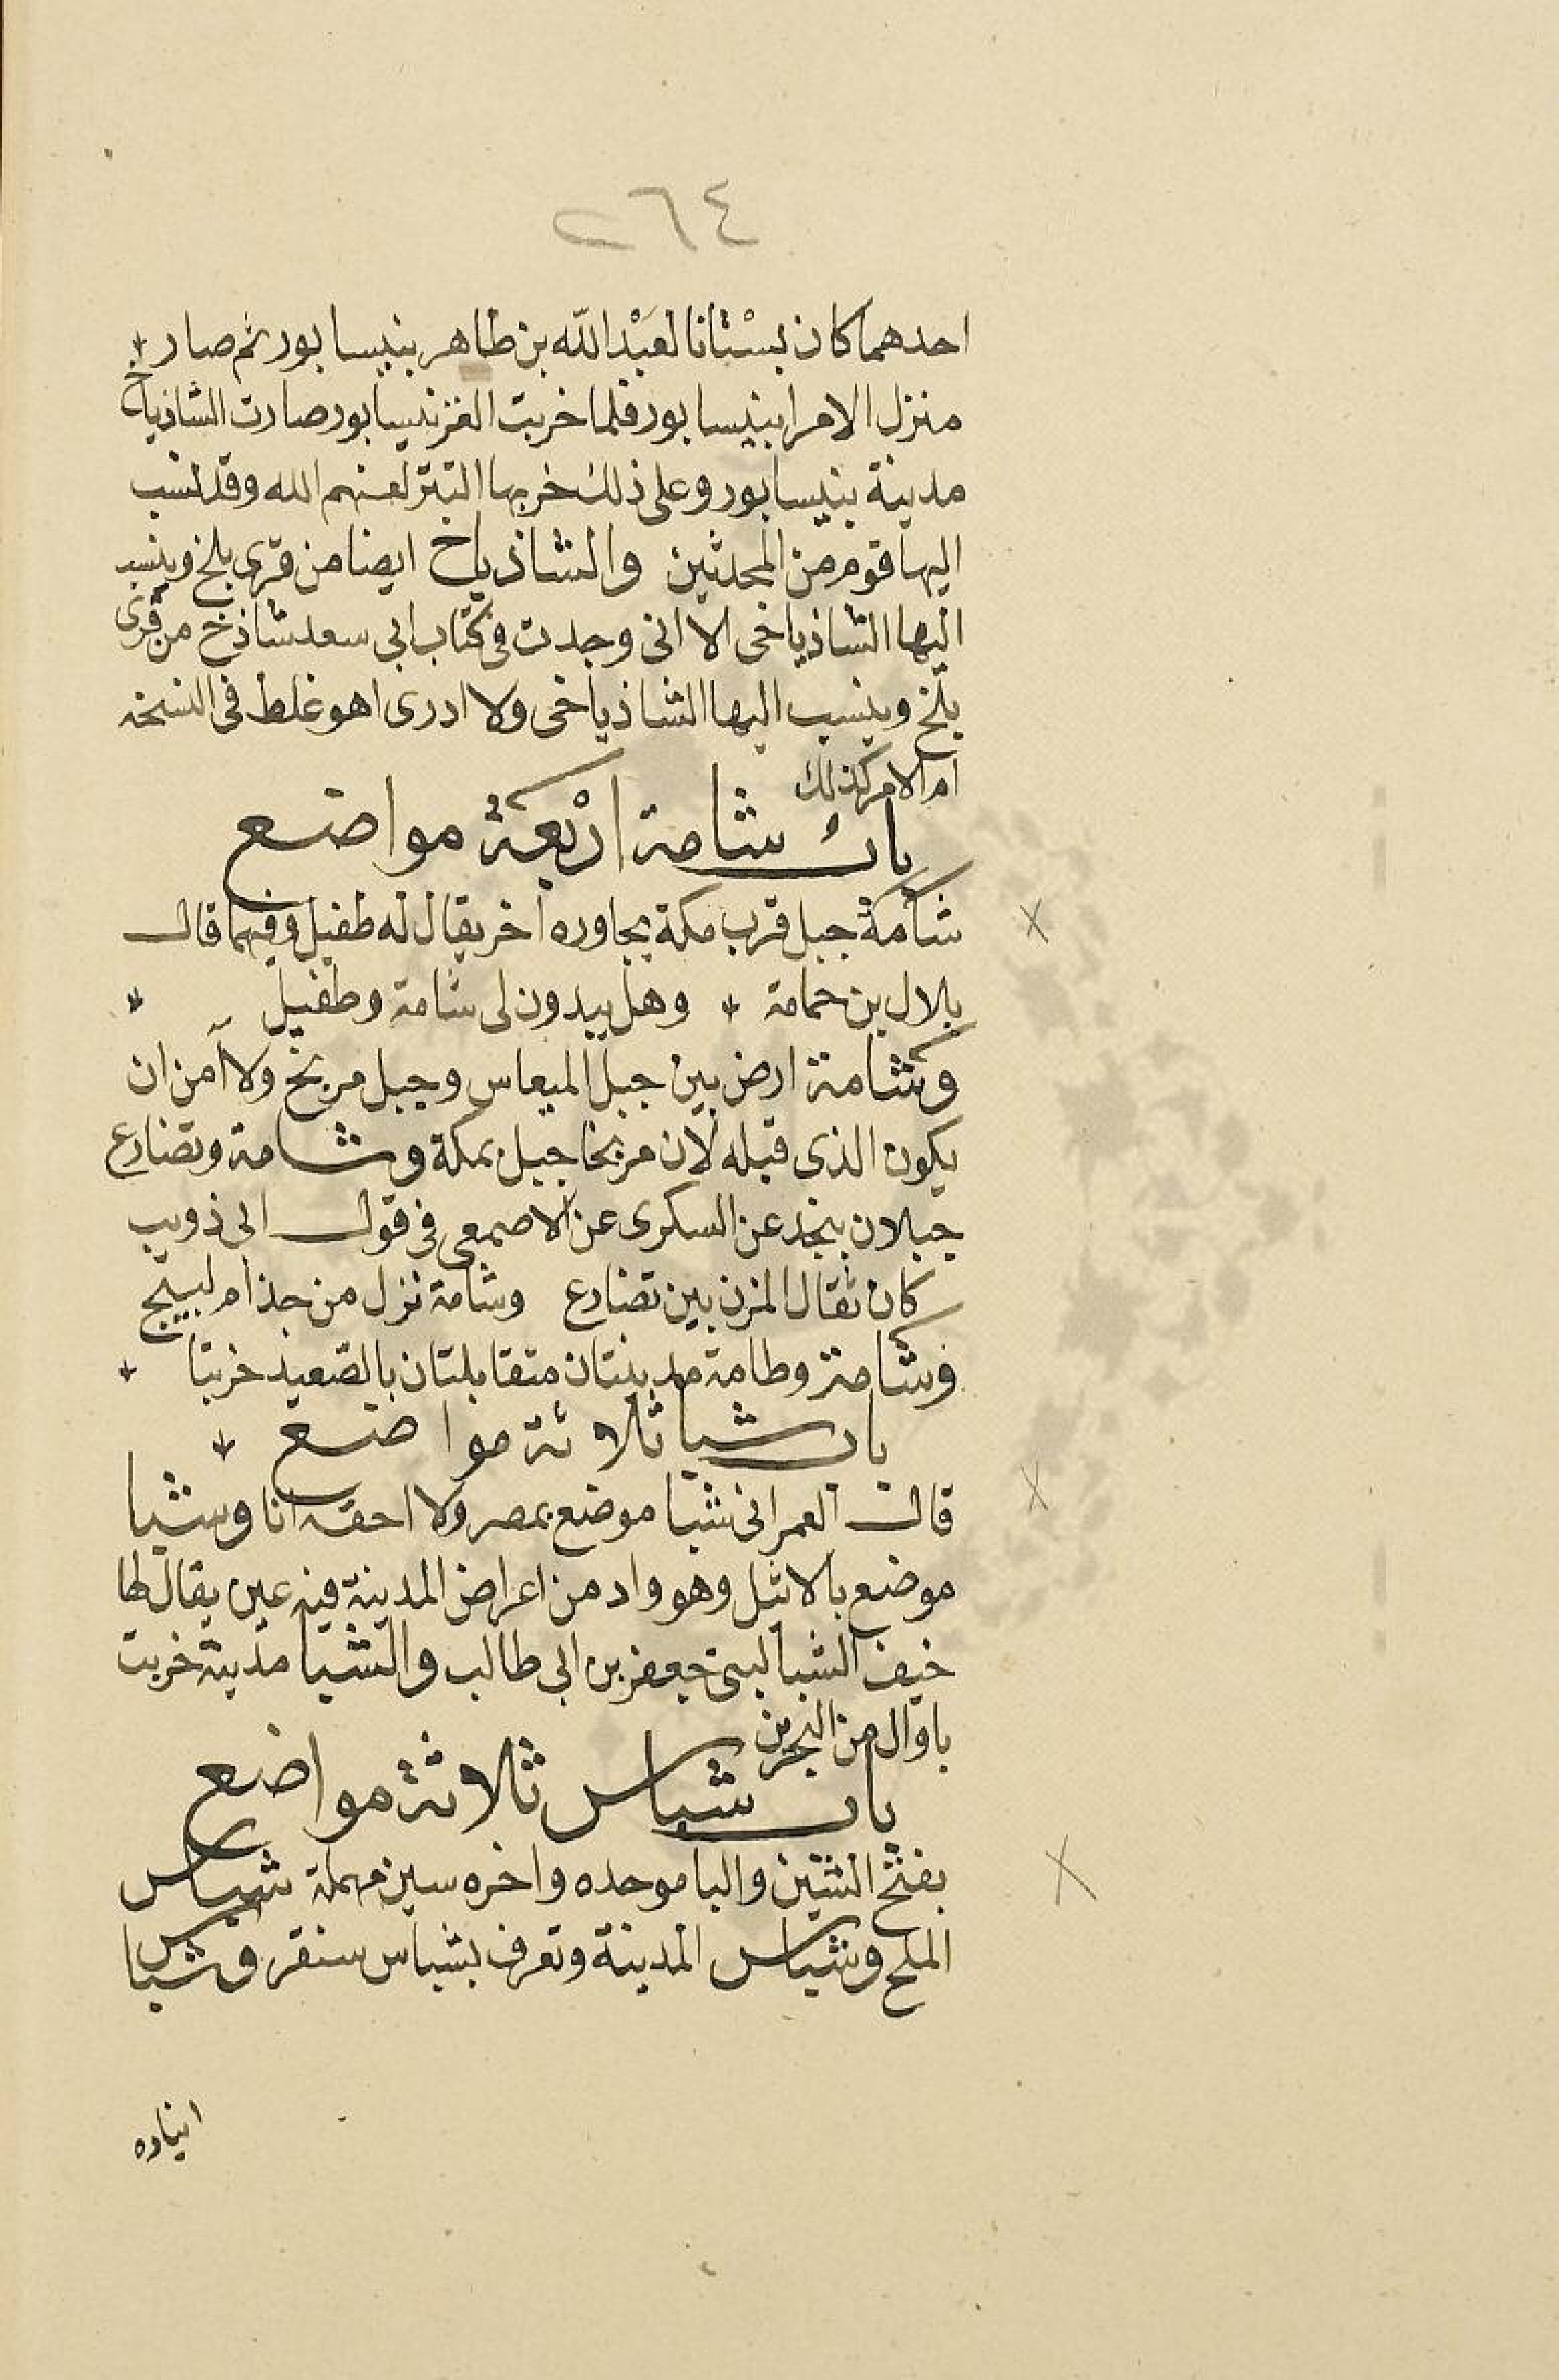 ٢٦٤
احدهما كان بستانا لعَبْد الله بن طاهر بنيسابور ثم صار
منزل الامرا بنيسابور فلما خربت الغز نيسابور صارت الشاذياخ
مدينة بنيسابور وعلى ذلك خربها التتر لعنهم الله وقد نسب
اليها قوم من المحدثين والشاذياخ ايضا من قرى بلخ وينسب
اليها الشاذياخى الا انى وجدت فى كتاب ابى سعد شاذخ من قرى
بلخ وينسب اليها الشاذياخى ولا ادرى اهو غلط فى النسخة
ام الامر كذلك
باب شامة ارْبعة مواضع
شامة جبل قرب مكة يجاوره اخر يقال له طفيل وفيهما قال
بلال بن حمامة وهل يبدون لى شامة وطفيل
وشامة ارض بين جبل الميعاس وجبل مربخ ولا آمن ان
يكون الذى قبله لان مربخا جبل بمكة وشامة وتضارع
جبلان بنجد عن السكرى عن الاصمعى فى قول ابى ذويب
كان ثقال المزن بين تضارع وشامة نزل من جذام لبيج
وشامة وطامة مدينتان متقابلتان بالصعيد خربتا
باب شبا ثلاثة مواضع
قال العمرانى شبا موضع بمصر ولا احقه انا وشبا
موضع بالاثيل وهو واد من اعراض المدينة فيه عين يقال لها
خيف الشبا لبنى جعفر بن ابى طالب والشبا مدينة خربت
باوال من البحرين
باب شباس ثلاثة مواضع
بفتح الشين والبا موحده واخره سين مهملة شباس
الملح وشباس المدينة وتعرف بشباس سنقر وشباس
انباره